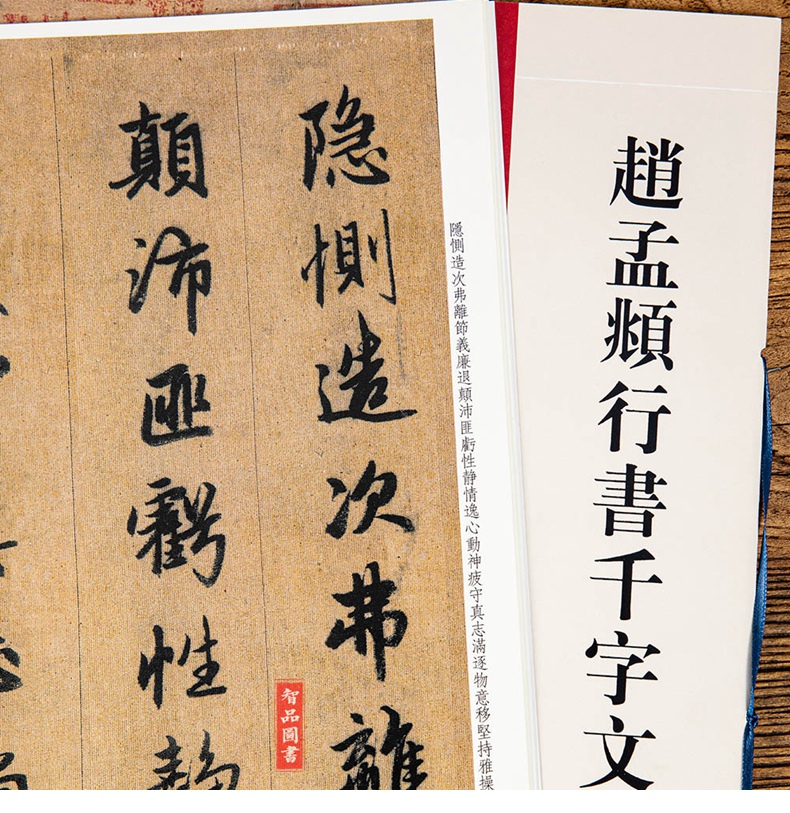 趙孟頫行書千字文
隱惻造次弗離節義廉退顛沛匪虧性静情逸心動神疲守真志滿逐物意移堅持雅操
隐惻造次弗離
顛沛匪虧性静
智品圖書